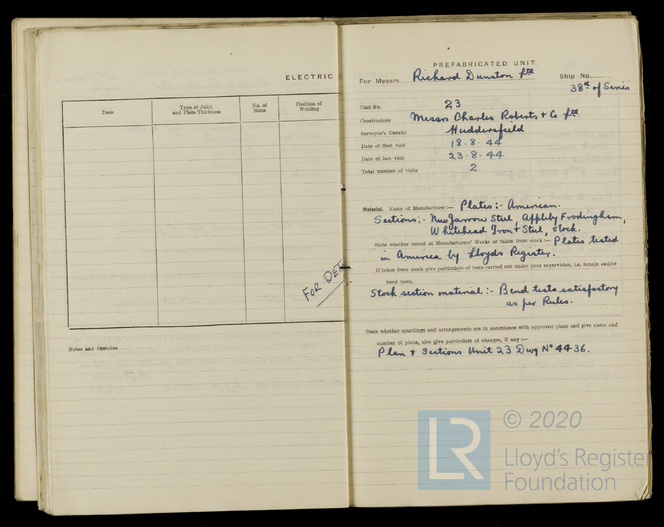 ELECTRIC
Item
Type of Joint and Plate Thickness
No. of Runs
Position of Welding
FOR DET
Notes and Sketches
PREFABRICATED UNIT.
For Messrs. Richard Dunston Ltd Ship No.
38th of Series
Unit No. 23
Constructors Messrs Charles Roberts & Co Ltd.
Surveyor's District Huddersfield
Date of first visit 18.8.44
Date of last visit 23.8.44
Total number of visits 2
Material. Name of Manufacturer:— Plates:- American.
Sections:- New Jarrow Steel, Appleby Frodingham,
Whitehead Iron & Steel, Stock.
State whether tested at Manufacturers' Works or taken from stock:— Plates tested
in America by Lloyds Register.
If taken from stock give particulars of tests carried out under your supervision, i.e. tensile and/or
bend tests.
Stock section material:- Bend tests satisfactory
as per Rules.
State whether scantlings and arrangements are in accordance with approved plans and give name and
number of plans, also give particulars of changes, if any:—
Plan & Sections Unit 23 Dwg No 4436.
LR
© 2020
Lloyd's Register
Foundation